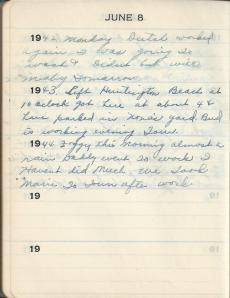 JUNE 8
1942 Monday Dutch worked
again I was going to
wash Didnt but will
maby tomarrow
1943. Left Huntington Beach at
10 oclock got here at about 4 &
live parked in yard. Bud
is working evening Tour
1944 Foggy this morning almost a
rain Daddy went to work I
Havent did Much. we took
Marie to town after work
19
19